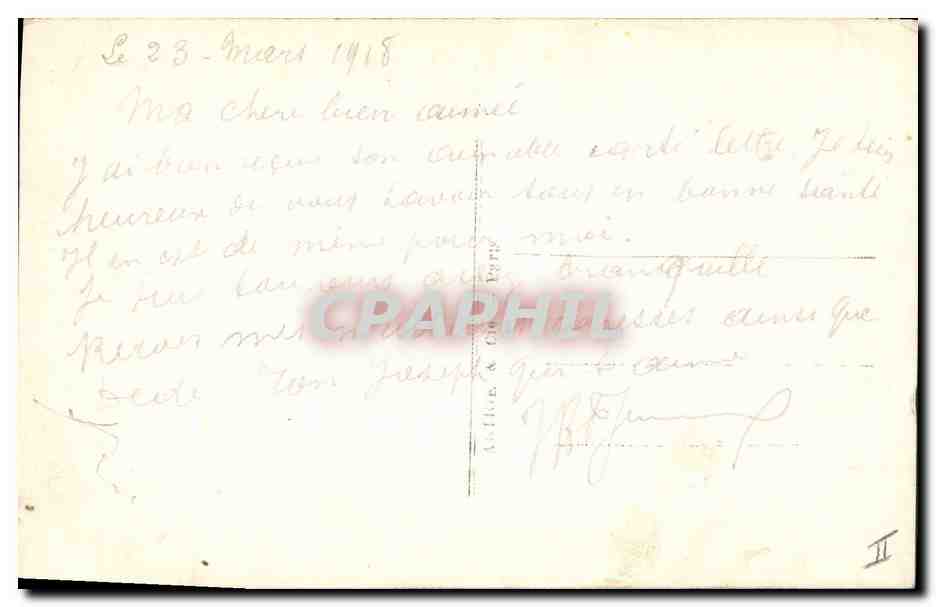 Le 23 - Mars 1918
Ma chere bien aimée
J ai bien reçue ton aimable carte lettre. Je suis
heureux de vous savoir tous en bonne santé
Il en est de même pour moi.
Je suis toujours assez tranquille
Recois mes caresses ainsi que
Ton Joseph qui t'aime
CRAPHIL
& Cie Paris
II